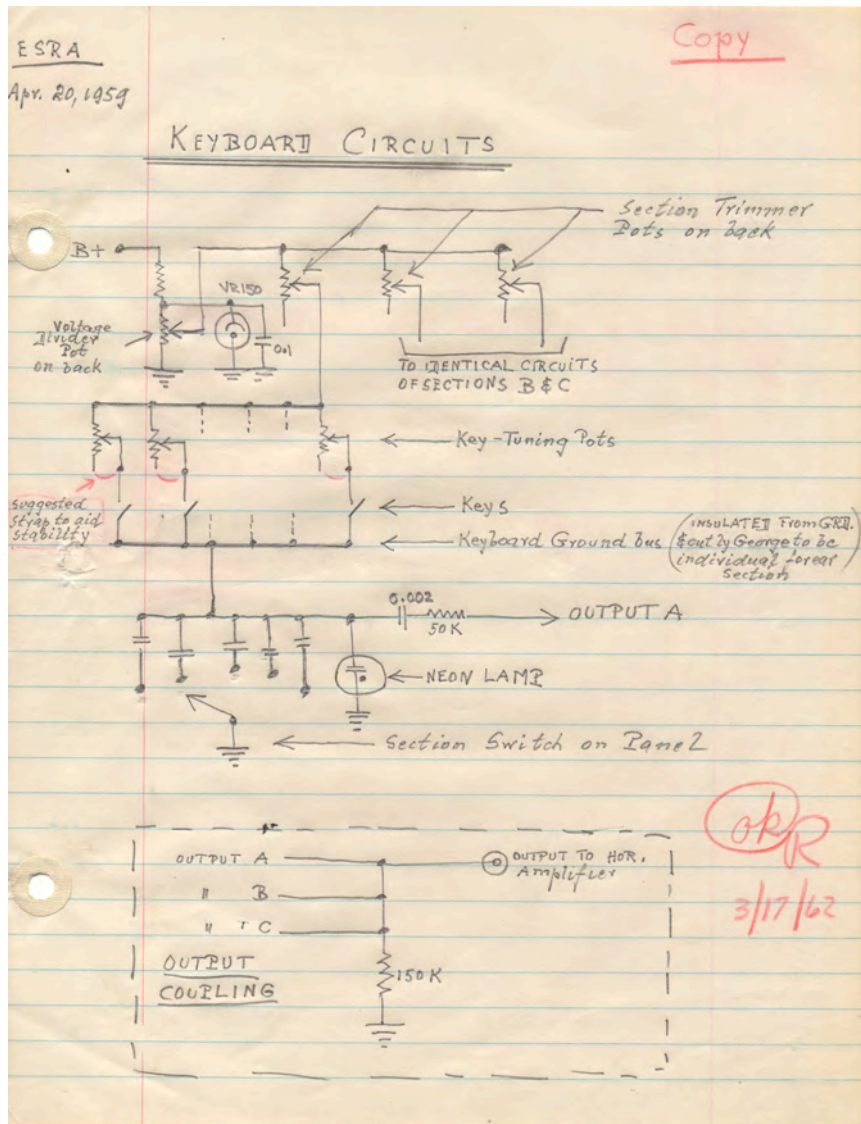 ESRA
Copy
Apr. 20, 1959
KEYBOARD CIRCUITS
Section Trimmer
Pots on back
B+
VR150
Voltage
Divider
Pot
on back
0.1
TO IDENTICAL CIRCUITS
OF SECTIONS B & C
Key-Tuning Pots
Suggested
strap to aid
stability
Keys
Keyboard Ground bus
(INSULATED From GRD.
& cut by George to be
individual for ea.
Section)
0.002
50K
OUTPUT A
NEON LAMP
Section Switch on Panel
ok R
3/17/62
OUTPUT A
" B
" C
OUTPUT TO HOR.
Amplifier
OUTPUT
COUPLING
150K